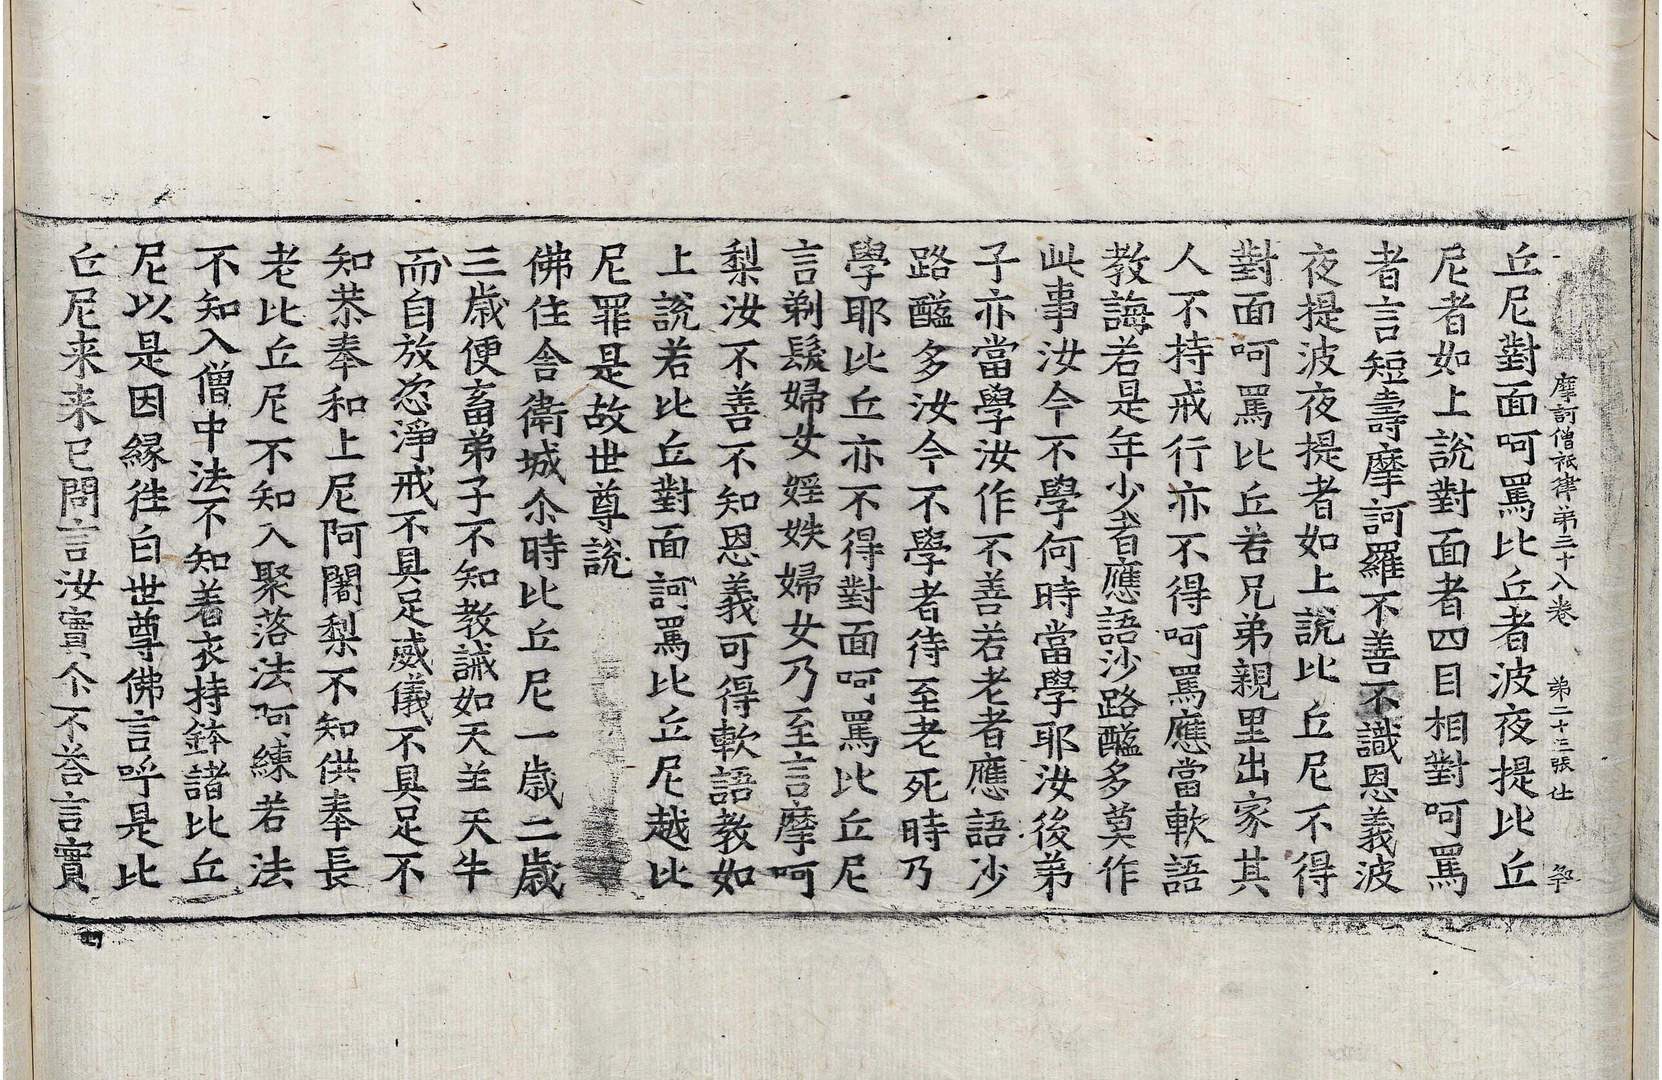 摩訶僧祇律第三十八卷 第二十三張 仕
丘尼對面呵罵比丘者波夜提比丘
尼者如上說對面者四目相對呵罵
者言短壽摩訶羅不善不識恩義波
夜提波夜提者如上說比丘尼不得
對面呵罵比丘若兄弟親里出家其
人不持戒行亦不得呵罵應當軟語
教誨若是年少者應語沙路醯多莫作
此事汝今不學何時當學耶汝後弟
子亦當學汝作不善若老者應語沙
路醯多汝今不學者待至老死時乃
學耶比丘亦不得對面呵罵比丘尼
言剃髮婦女婬妷婦女乃至言摩呵
梨汝不善不知恩義可得軟語教如
上說若比丘對面訶罵比丘尼越比
尼罪是故世尊說
佛住舍衛城尒時比丘尼一歲二歲
三歲便畜弟子不知教誡如天羊天牛
而自放恣淨戒不具足威儀不具足不
知恭奉和上尼阿闍梨不知供奉長
老比丘尼不知入聚落法阿練若法
不知入僧中法不知着衣持鉢諸比丘
尼以是因緣往白世尊佛言呼是比
丘尼来来已問言汝實尒不荅言實